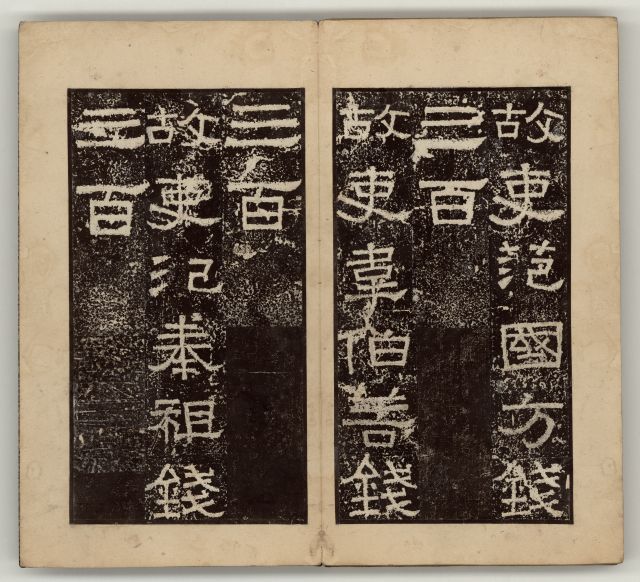 故吏范國方錢
三百
故吏韋伯善錢
三百
故吏氾奉祖錢
三百